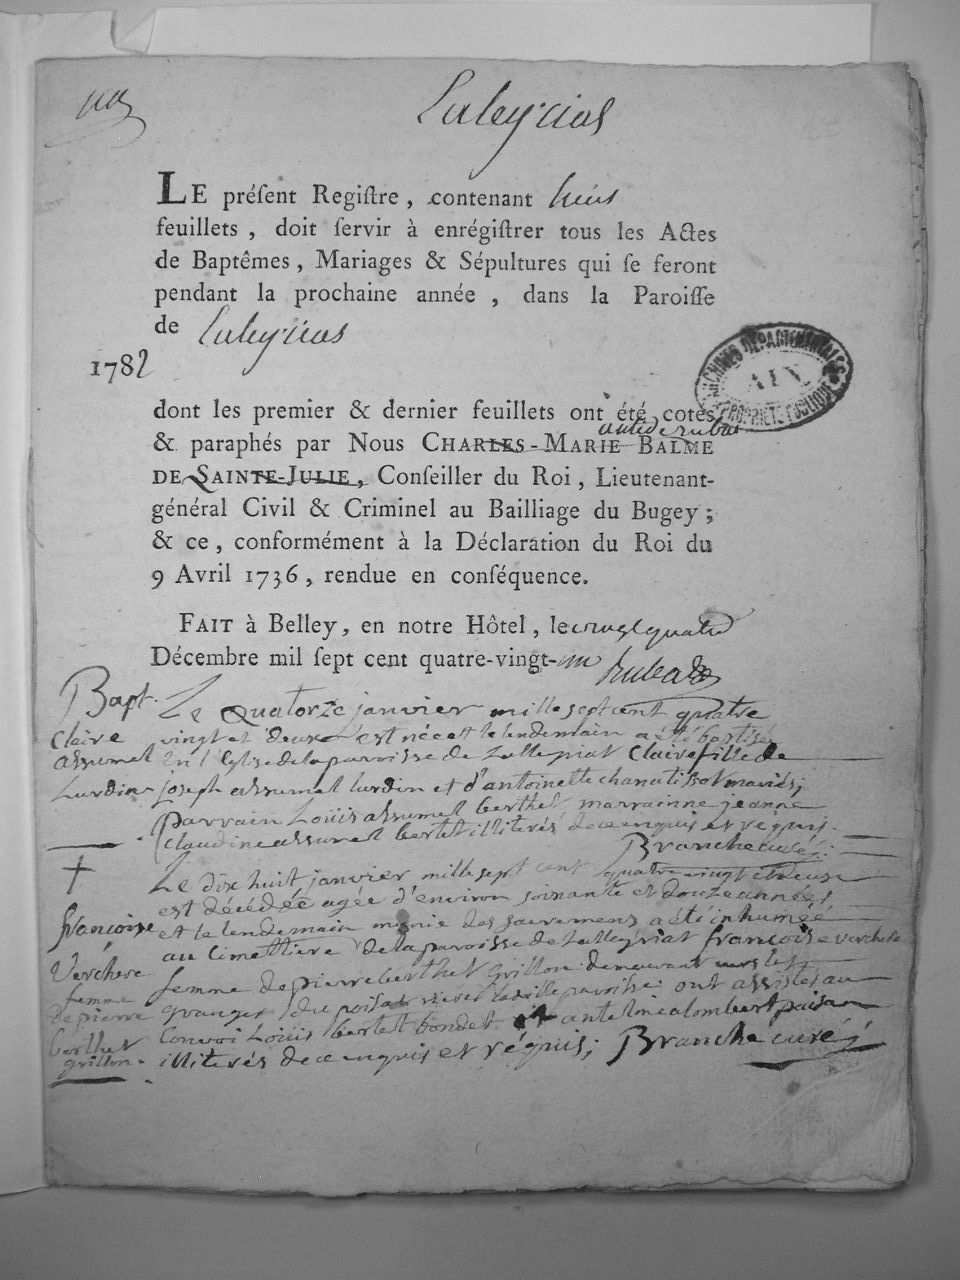 Laleyriat
LE préſent Regiſtre, contenant huit
feuillets, doit ſervir à enrégiſtrer tous les Actes
de Baptêmes, Mariages & Sépultures qui ſe feront
pendant la prochaine année, dans la Paroiſſe
de Laleyriat
1782
ARCHIVES DÉPARTEMENTALES
AIN
PROPRIÉTÉ PUBLIQUE
dont les premier & dernier feuillets ont été cotés
& paraphés par Nous CHARLES-MARIE BALME
DE SAINTE-JULIE, Conſeiller du Roi, Lieutenant-
général Civil & Criminel au Bailliage du Bugey;
& ce, conformément à la Déclaration du Roi du
9 Avril 1736, rendue en conſéquence.
FAIT à Belley, en notre Hôtel, le vingt quatre
Décembre mil ſept cent quatre-vingt-un
Bapt.
Claire
assumel
Lurdin
Le quatorze janvier mille sept cent quatre
vingt et deux est née et le lendemain a été baptisée
en l'Eglise de la paroisse de Lalleyriat Claire fille de
joseph assumel lurdin et d'antoinette mariés;
parrain Louis assumel berthet marrainne jeanne
claudine assumel bertet illiterés de ce enquis et réquis.
Branche curé;
†
françoise
Verchere
femme
de pierre
berthet
grillon.
Le dix huit janvier mille sept cent quatre vingt et deux
est décédée agée d'environ soixante et douze années
et le lendemain munie des sacremens a été inhumée
au Cimettiere de la paroisse de Lalleyriat françoise verchere
femme de pierre berthet grillon demeurant
granges du poisat ont assistés au
Convoi Louis bertet bondet et antoine alombert
illiterés de ce enquis et réquis; Branche curé;